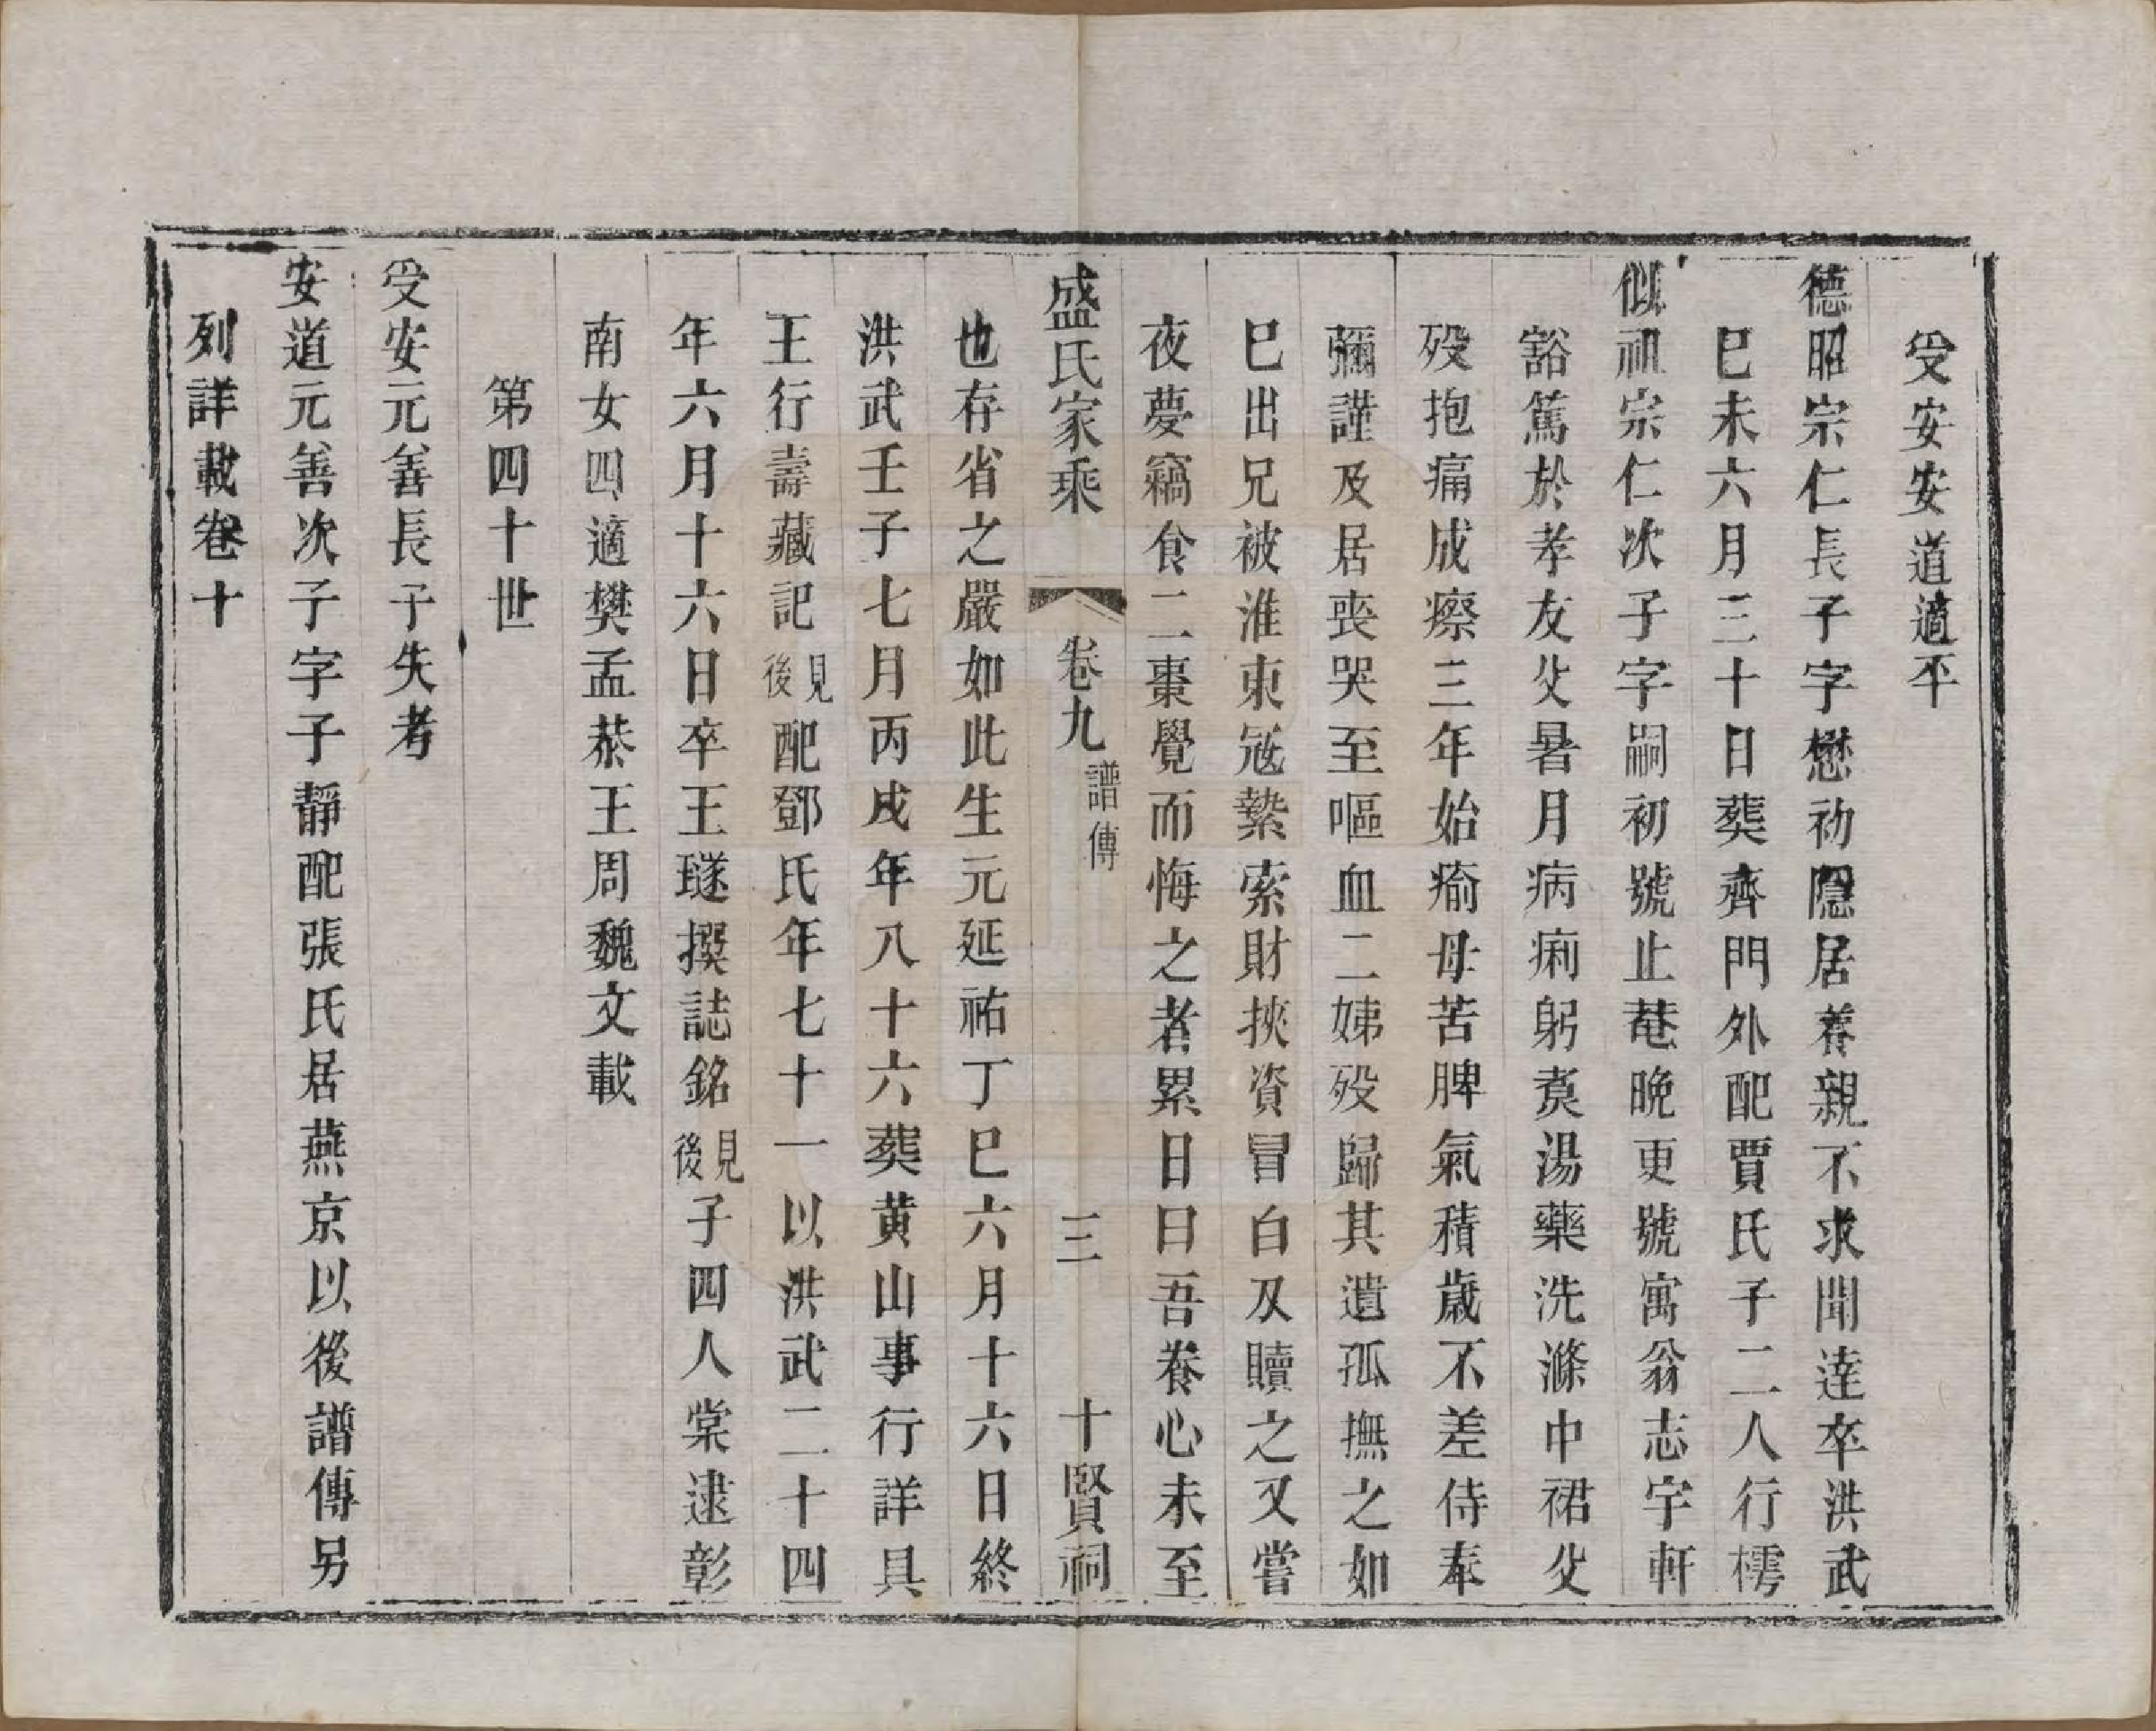 受安安道適平
德昭宗仁長子字懋初隱居養親不求聞達卒洪武
巳未六月三十日葬齊門外配賈氏子二人行樗
似祖宗仁次子字嗣初號止菴晚更號寓翁志宇軒
豁篤於孝友父暑月病痢躬煑湯藥洗滌中裙父
歿抱痛成瘵三年始瘉母苦脾氣積歲不差侍奉
彌謹及居喪哭至嘔血二姊歿歸其遺孤撫之如
巳出兄被淮東寇縶索財挾資冒白刃贖之又嘗
夜夢竊食二棗覺而悔之者累日曰吾養心未至
盛氏家乘 卷九 譜傳 三 十賢祠
也存省之嚴如此生元延祐丁巳六月十六日終
洪武壬子七月丙戌年八十六葬黄山事行詳具
王行壽藏記見後配鄧氏年七十一以洪武二十四
年六月十六日卒王璲撰誌銘見後子四人棠逮彰
南女四適樊孟恭王周魏文載
第四十世
受安元善長子失考
安道元善次子字子靜配張氏居燕京以後譜傳另
列詳載卷十